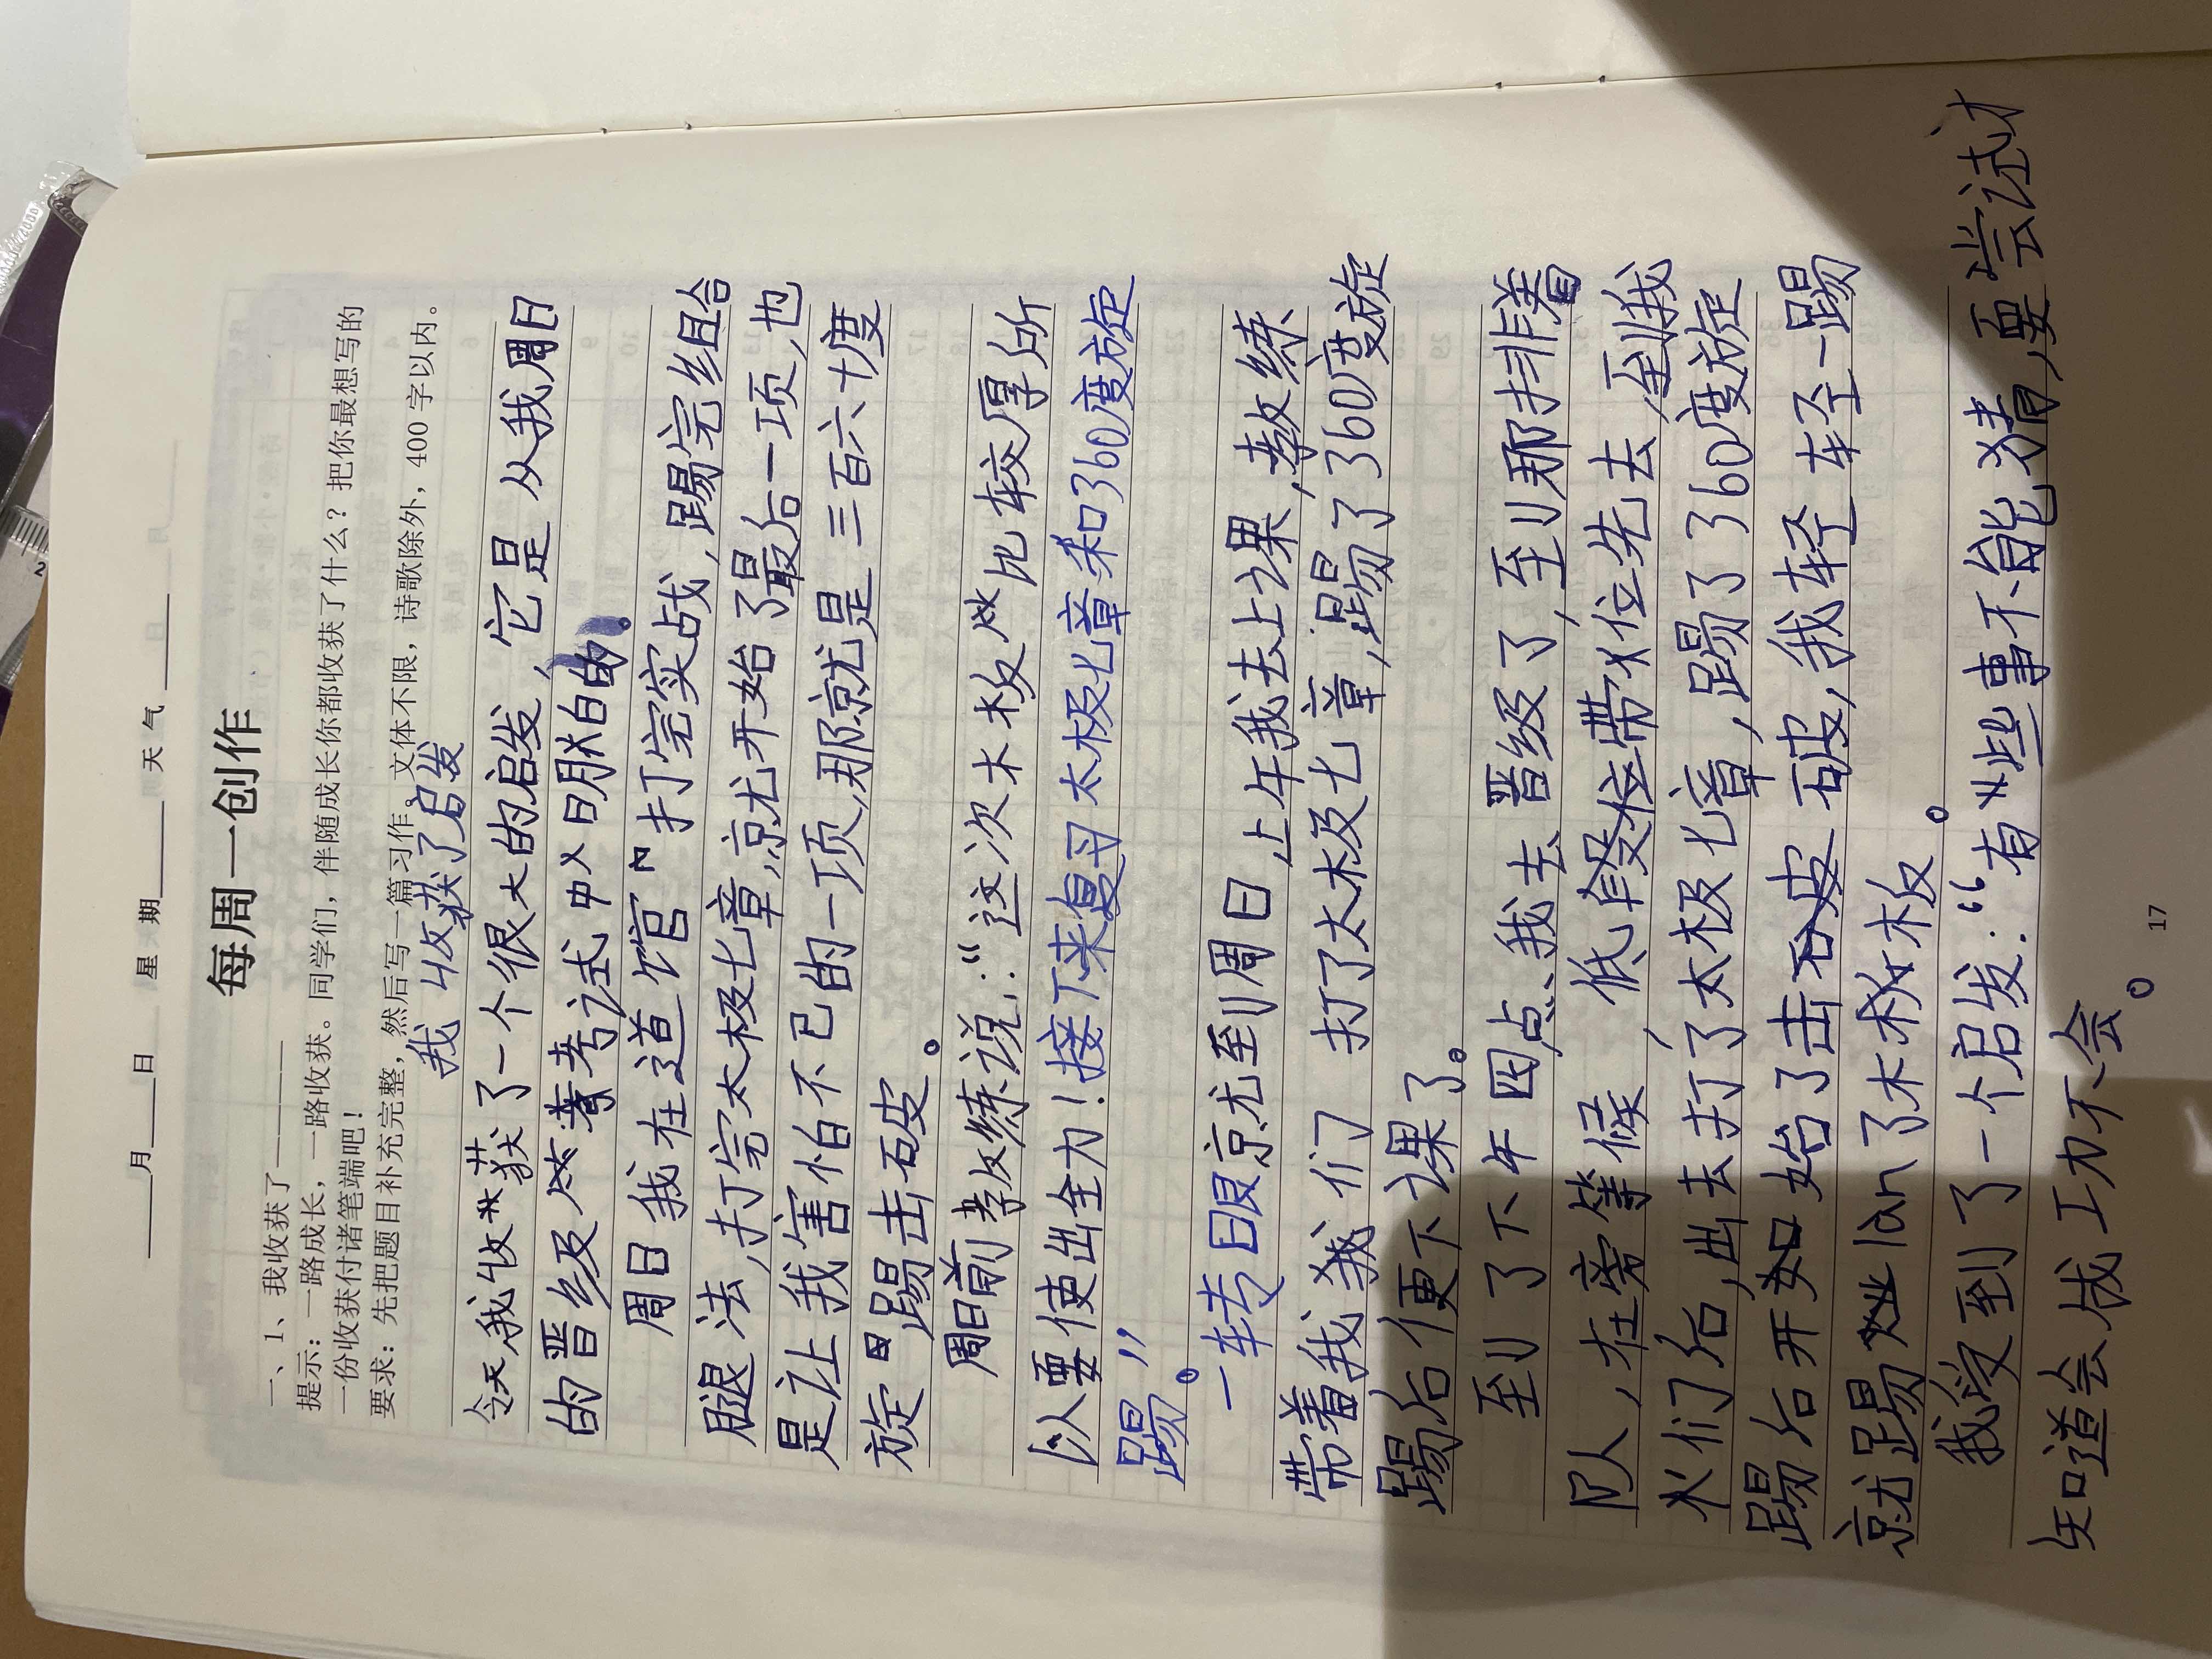 ____月____日 星期____ 天气____
每周一创作
一、1、我收获了________
提示：一路成长，一路收获。同学们，伴随成长你都收获了什么？把你最想写的
一份收获付诸笔端吧！
要求：先把题目补充完整，然后写一篇习作。文体不限，诗歌除外，400字以内。
我收获了启发
今天我收获了一个很大的启发，它是从我周日
的晋级考试中明白的。
周日我在道馆内打完实战，踢完组合
腿法，打完太极七章，就开始了最后一项，也
是让我害怕不已的一项，那就是三百六十度
旋踢击破。
周日前教练说：“这次木板比较厚所
以要使出全力！接下来复母太极七章和360度旋
踢。”
一转专眼就到周日，上午我去上课，教练
带着我们打了太极七章，踢了360度旋
踢后便下课了。
到了下午四点，我去晋级了，到那排着
队，在旁等候，低段位带位先去，到我
们后，出去打了太极七章，踢了360度旋
踢后开始了击破，我轻轻一踢
就踢lan了木板。
我受到了一个启发：“有些事不能猜，要尝试才
知道会成功不会。
17